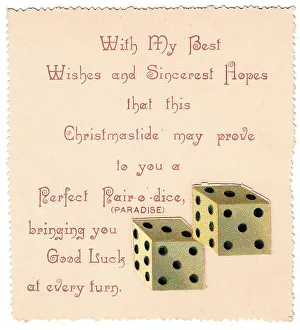 With My Best
Wishes and Sincerest Hopes
that this
Christmastide may prove
to you a
Perfect Pair-o'-dice,
(PARADISE)
bringing you
Good Luck
at every turn.